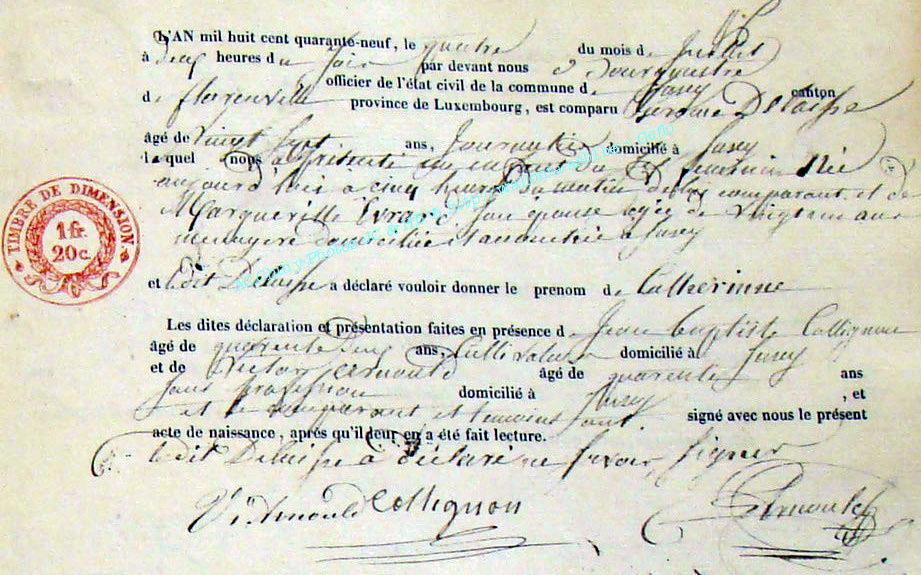 L'AN mil huit cent quarante-neuf, le quatre du mois de Juillet
à deux heures du soir par devant nous
officier de l'état civil de la commune de Jusey canton
de florenville province de Luxembourg, est comparu Delaisse
âgé de vingt sept ans, domicilié à Jusey
lequel nous a présenté un enfant du feminin Née
aujourd'hui à cinq heures du matin de lui comparant et de
Marguerite Evrard son épouse agée de vingt un ans
menagere domiciliée à Jusey
et ledit Delaisse a déclaré vouloir donner le prenom de Catherinne
Les dites déclaration et présentation faites en présence de Jean Baptiste Collignon
âgé de quarente deux ans, Cultivateur domicilié à Jusey
et de Victor Arnould âgé de quarente ans
sans profession domicilié à Jusey , et
et le comparant et temoins ont signé avec nous le présent
acte de naissance, aprés qu'il leur en a été fait lecture.
ledit Delaisse a déclaré ne savoir signer
V. Arnould Collignon
TIMBRE DE DIMENSION
1 fr.
20 c.